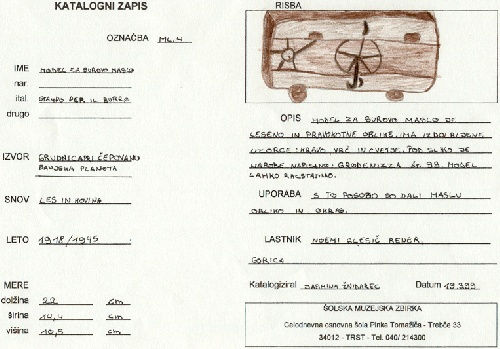 KATALOGNI ZAPIS
OZNAČBA ML. 4
IME MODEL ZA SUROVO MASLO
nar.
ital. STAMPO PER IL BURRO
drugo
IZVOR GRUDNICA PRI ČEPOVANO
BANJŠKA PLANOTA
SNOV LES IN KOVINA
LETO 1918/1945
MERE
dolžina 22 cm
širina 10,4 cm
višina 10,5 cm
RISBA
OPIS MODEL ZA SUROVO MASLO JE
LESENO IN PRAVOKOTNE OBLIKE. IMA IZDOLBJENE
VZORCE: KRAVO, VRČ IN CVETJE. POD SLIKO JE
NAROBE NAPISANO: ŠT. 99. MODEL
LAHKO
UPORABA S TO POSODO SO DALI MASLU
OBLIKO IN OKRAS.
LASTNIK NOEMI
GORICA
Katalogiziral JASMINA Datum
ŠOLSKA MUZEJSKA ZBIRKA
Celodnevna osnovna šola Pinka Tomažiča - Trebče 33
34012 - TRST - Tel. 040/ 214300